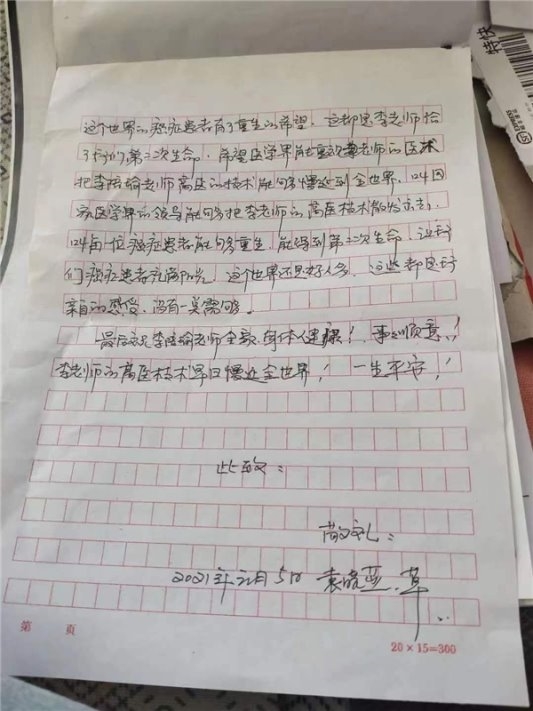 这个世界的癌症患者有了重生的希望，这都是李老师给
了我们第二次生命，希望医学界能重视李老师的医术
把李培瑜老师高医的技术能够播边到全世界，以因
病医学界的领导能够把李老师的高医技术散发出去，
以每一位癌症患者能够重生，能得到第二次生命，让我
们癌症患者充满阳光，这个世界还是好人多，这些都是我
亲自的感受，没有一关需够。
最后祝李培瑜老师全家身体健康！事事顺意！
李老师的高医技术早日播边全世界！一生平安！
此致：
敬礼：
2021年元月5日 袁晓燕.草
第 页
20×15=300
特快